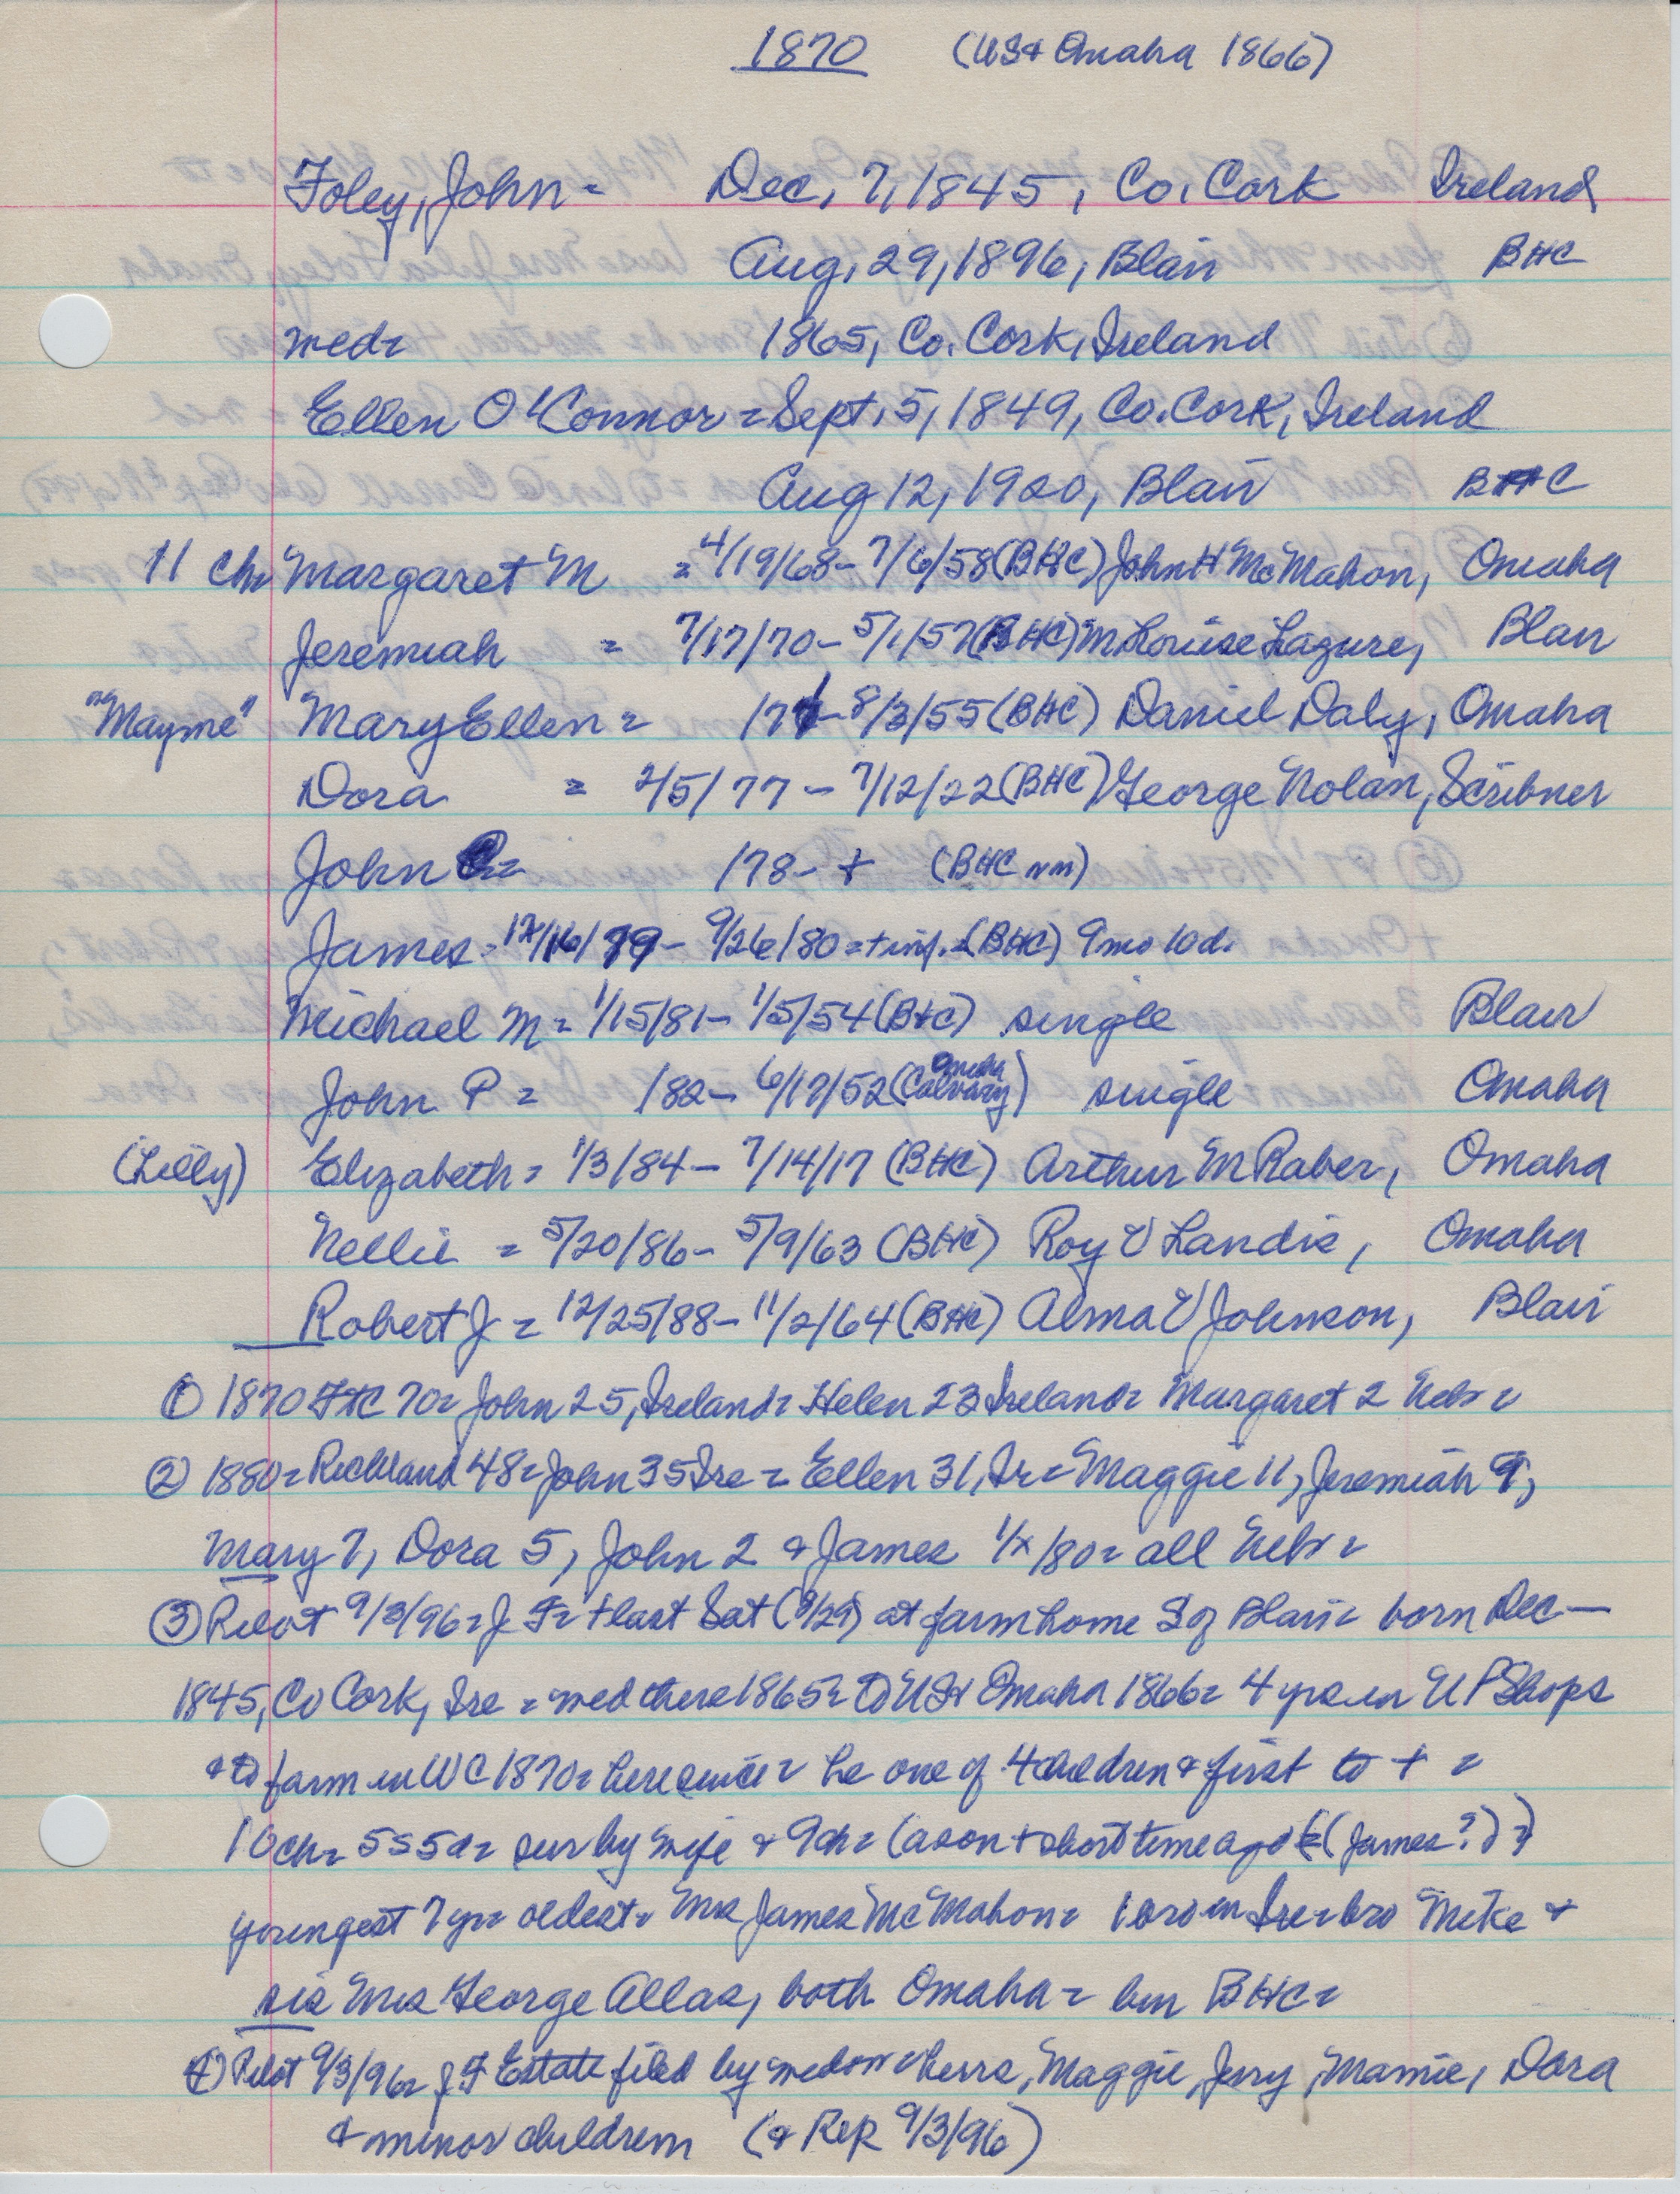 1870 (US & Omaha 1866)
Foley, John = Dec, 7, 1845, Co. Cork Ireland
Aug, 29, 1896, Blair BHC
med= 1865, Co. Cork, Ireland
Ellen O'Connor = Sept. 5, 1849, Co. Cork, Ireland
Aug 12, 1920, Blair BHC
11 ch= Margaret M = 4/19/68 - 7/6/58 (BHC) John H McMahon, Omaha
Jeremiah = 7/17/70 - 5/1/57 (BHC) M Louise Lazure, Blair
"Mayme" Mary Ellen = 8/3/55 (BHC) Daniel Daly, Omaha
Dora = 2/5/77 - 7/12/22 (BHC) George Nolan, Scribner
John = /78 - + (BHC nm)
James = 12/16/79 - 9/26/80 = + inf. = (BHC) 9 mo 10 d.
Michael M = 1/15/81 - 1/5/54 (BHC) single Blair
John P = /82 - 6/17/52 (Omaha Calvary) single Omaha
(Lilly) Elizabeth = 1/3/84 - 7/14/17 (BHC) Arthur M Raber, Omaha
Nellie = 5/20/86 - 5/9/63 (BHC) Roy V Landis, Omaha
Robert J = 12/25/88 - 11/2/64 (BHC) Alma V Johnson, Blair
① 1870 FTC 70 = John 25, Ireland = Helen 23 Ireland = Margaret 2 Nebr =
② 1880 = Richland 48 = John 35 Ire = Ellen 31, Ir = Maggie 11, Jeremiah 9,
Mary 7, Dora 5, John 2 & James 1/x/80 = all Nebr =
③ Pilot 9/3/96 = J F = + last Sat (8/29) at farm home S of Blair = born Dec —
1845, Co Cork, Ire = med there 1865 = to US & Omaha 1866 = 4 yrs in UP Shops
& to farm in WC 1870 = here since = he one of 4 children & first to + =
10 ch = 5 s 5 d = sur by wife & 9 ch = (a son + short time ago = (James?) =)
youngest 7 yr = oldest = Mrs James McMahon = 1 bro in Ire = bro Mike &
sis Mrs George Allas, both Omaha = bur BHC =
④ Pilot 9/3/96 = J F Estate filed by widow & heirs, Maggie, Jerry, Mamie, Dora
& minor children (& Rep 9/3/96)